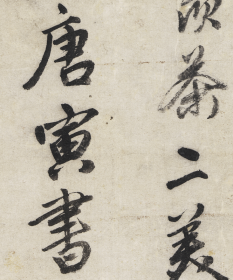 茶二美
唐寅書